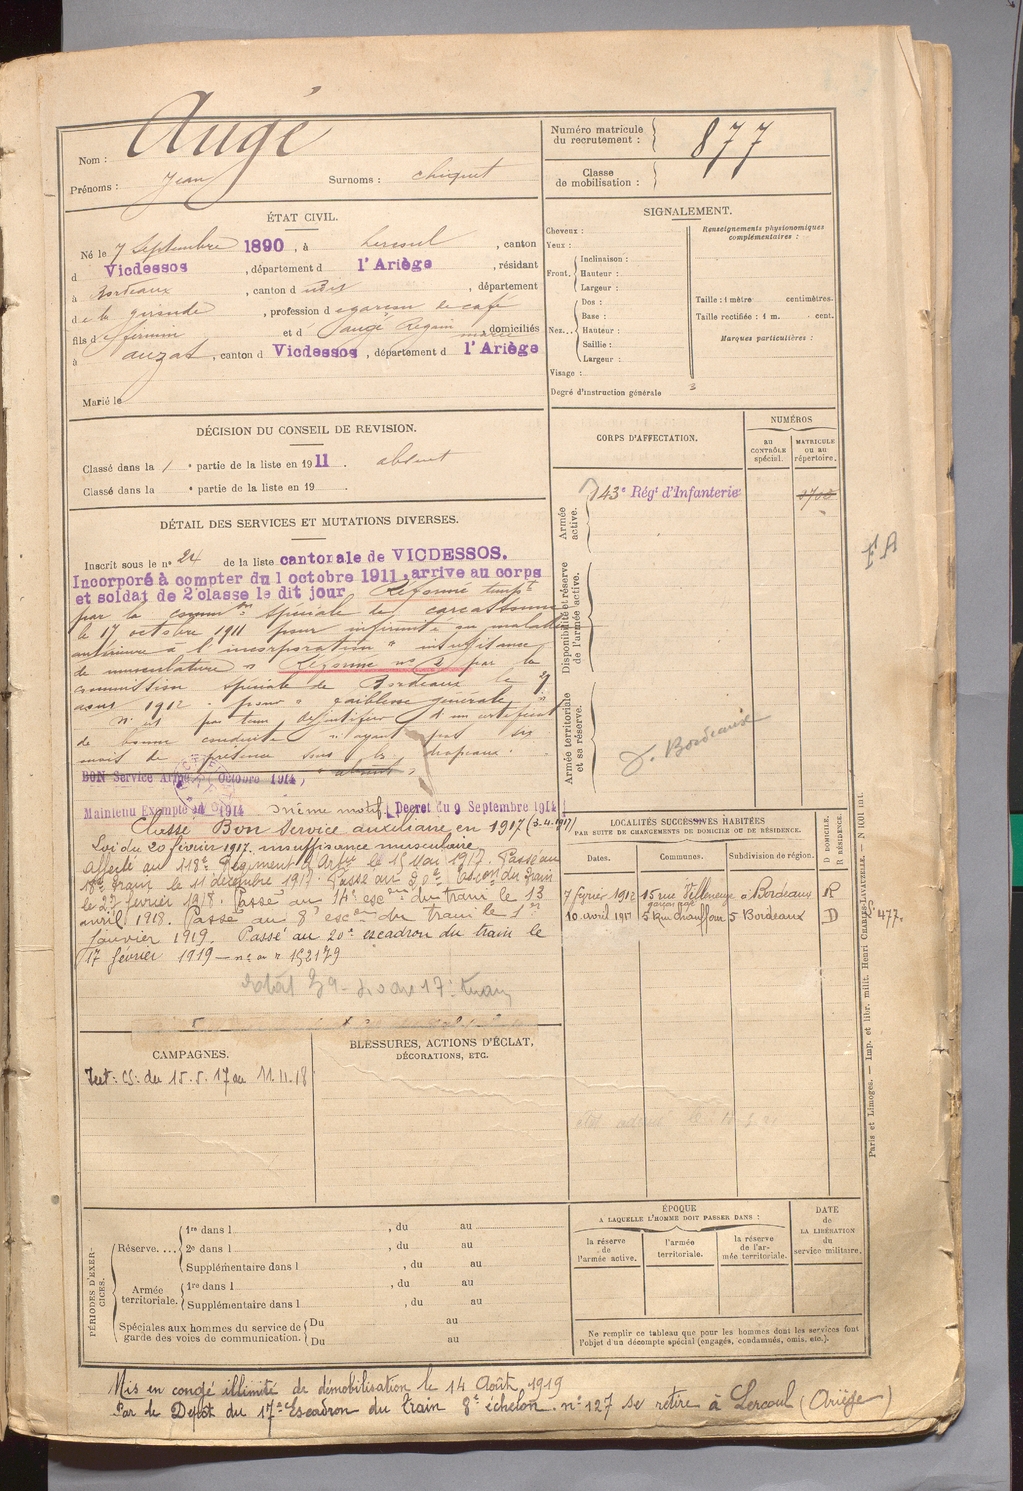 Nom : Augé
Prénoms : Jean Surnoms : chiquet
Numéro matricule du recrutement : 877
Classe de mobilisation :
ÉTAT CIVIL.
Né le 7 Septembre 1890, à Lercoul, canton
d Vicdessos, département d l'Ariège, résidant
à Bordeaux, canton d udit, département
de la gironde, profession d e garçon de café
fils d e firmin et d augé Regain marie domiciliés
à auzat, canton d Vicdessos, département d l'Ariège
Marié le
SIGNALEMENT.
Cheveux :
Yeux :
Front. Inclinaison :
Hauteur :
Largeur :
Nez... Dos :
Base :
Hauteur :
Saillie :
Largeur :
Visage :
Renseignements physionomiques complémentaires :
Taille : 1 mètre centimètres.
Taille rectifiée : 1 m. cent.
Marques particulières :
Degré d'instruction générale 3
DÉCISION DU CONSEIL DE REVISION.
Classé dans la 1e partie de la liste en 1911. absent
Classé dans la e partie de la liste en 19
CORPS D'AFFECTATION.
NUMÉROS
AU CONTRÔLE spécial.
MATRICULE OU AU répertoire.
Armée active.
143e Régt d'Infanterie
Disponibilité et réserve de l'armée active.
Armée territoriale et sa réserve.
J. Bordeaux
FA
DÉTAIL DES SERVICES ET MUTATIONS DIVERSES.
Inscrit sous le n° 24 de la liste cantonale de VICDESSOS.
Incorporé à compter du 1 octobre 1911, arrive au corps
et soldat de 2e classe le dit jour. Réformé tempre
par la common spéciale de Carcassonne
le 17 octobre 1911 pour infirmité ou maladie
antérieure à l'incorporation " insuffisance
de musculature " Réformé n° 2 par la
commission spéciale de Bordeaux le 29
1912 pour " faiblesse générale "
N'est pas tenu de justifier d'un certificat
de bonne conduite n'ayant pas six
mois de présence sous les drapeaux.
BON Service Armé Octobre 1914, " absent "
Maintenu Exempté 1914 même motif Décret du 9 Septembre 1914
Classé Bon Service auxiliaire en 1917 (3.4.1917)
Loi du 20 février 1917. insuffisance musculaire
Affecté au 118e Régiment d'Artie le 15 Mai 1917. Passé au
18e train le 11 décembre 1917. Passé au 20e escon du train
le 27 février 1918. Passé au 14e escon du train le 13
avril 1918. Passé au 8e escon du train le 1er
janvier 1919. Passé au 20e escadron du train le
17 février 1919
LOCALITÉS SUCCESSIVES HABITÉES
PAR SUITE DE CHANGEMENTS DE DOMICILE OU DE RÉSIDENCE.
Dates. Communes. Subdivision de région. D DOMICILE. R RÉSIDENCE.
7 février 1912 15 rue Villeneuve à Bordeaux R
10 avril 1917 5 rue Chauffour 5 Bordeaux D
477.
CAMPAGNES.
Int : CS : du 15.5.17 au 11.11.18
BLESSURES, ACTIONS D'ÉCLAT, DÉCORATIONS, ETC.
PÉRIODES D'EXERCICES.
Réserve.... 1re dans l , du au
2e dans l , du au
Supplémentaire dans l , du au
Armée territoriale. 1re dans l , du au
Supplémentaire dans l , du au
Spéciales aux hommes du service de garde des voies de communication. Du au
Du au
ÉPOQUE
A LAQUELLE L'HOMME DOIT PASSER DANS :
la réserve de l'armée active.
l'armée territoriale.
la réserve de l'armée territoriale.
DATE de LA LIBÉRATION du service militaire.
Ne remplir ce tableau que pour les hommes dont les services font
l'objet d'un décompte spécial (engagés, condamnés, omis, etc.).
Paris et Limoges. — Imp. et libr. milit. Henri CHARLES-LAVAUZELLE.
Mis en congé illimité de démobilisation le 14 Août 1919
Par le Dépôt du 17me Escadron du train 8e échelon. n° 127 se retire à Lercoul (Ariège)